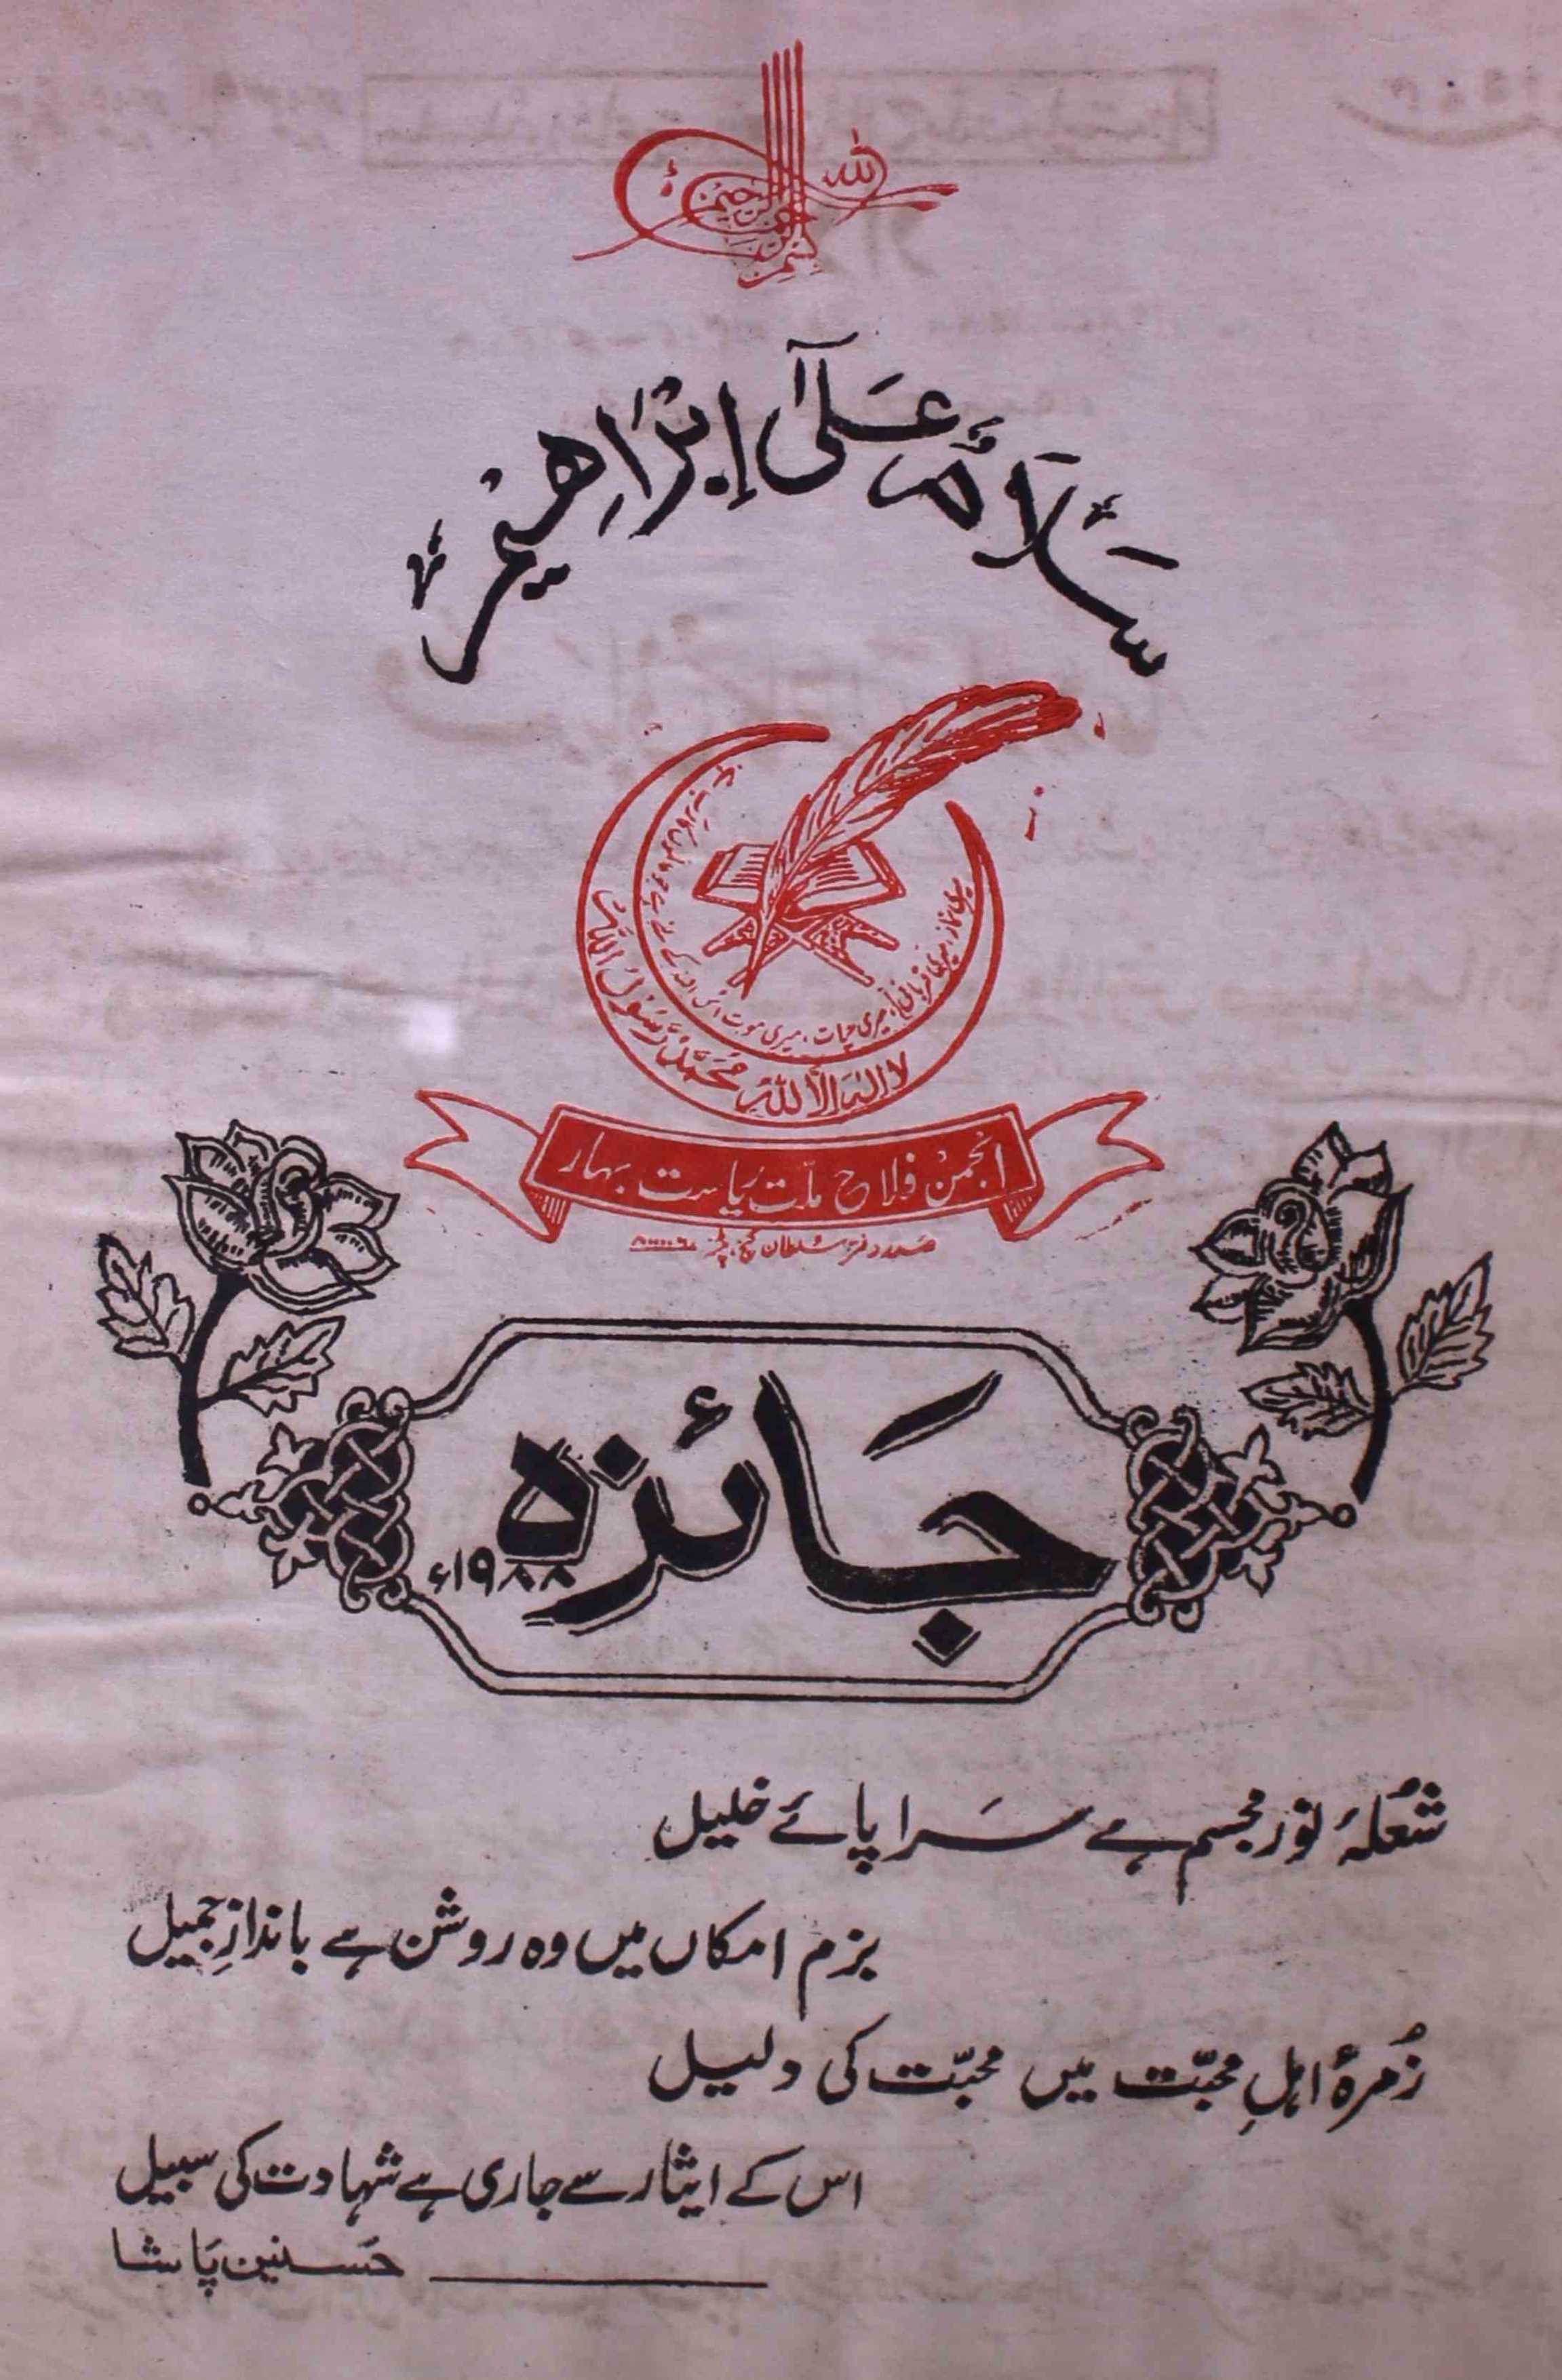 بسم اللہ الرحمن الرحیم
سَلَامٌ عَلَىٰٓ إِبْرَاهِيمَ
میری نماز، میری قربانی، میری حیات، میری موت اس اللہ کے لئے ہے جو
لا الہ الا اللہ محمد رسول اللہ
انجمن فلاح ملت ریاست بہار
صدر دفتر سلطان گنج، پٹنہ
جَائزہ
۱۹۸۸ء
شعلۂ نور مجسم ہے سَراپائے خلیل
بزم امکاں میں وہ روشن ہے باندازِ جمیل
زُمرۂ اہلِ محبّت میں محبّت کی دلیل
اس کے ایثار سے جاری ہے شہادت کی سبیل
حَسنین پَاشا